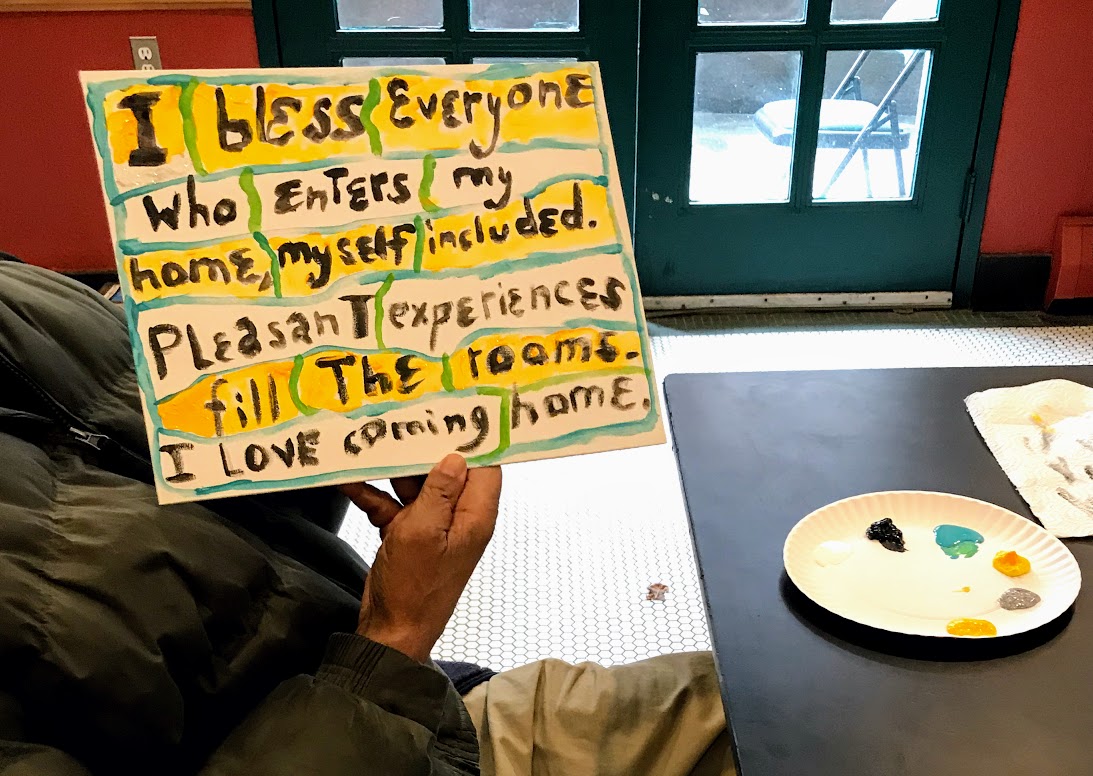 I bless Everyone
who EnTErs my
home, myself included.
PLeasanT experiences
fill The rooms.
I LOVE coming home.